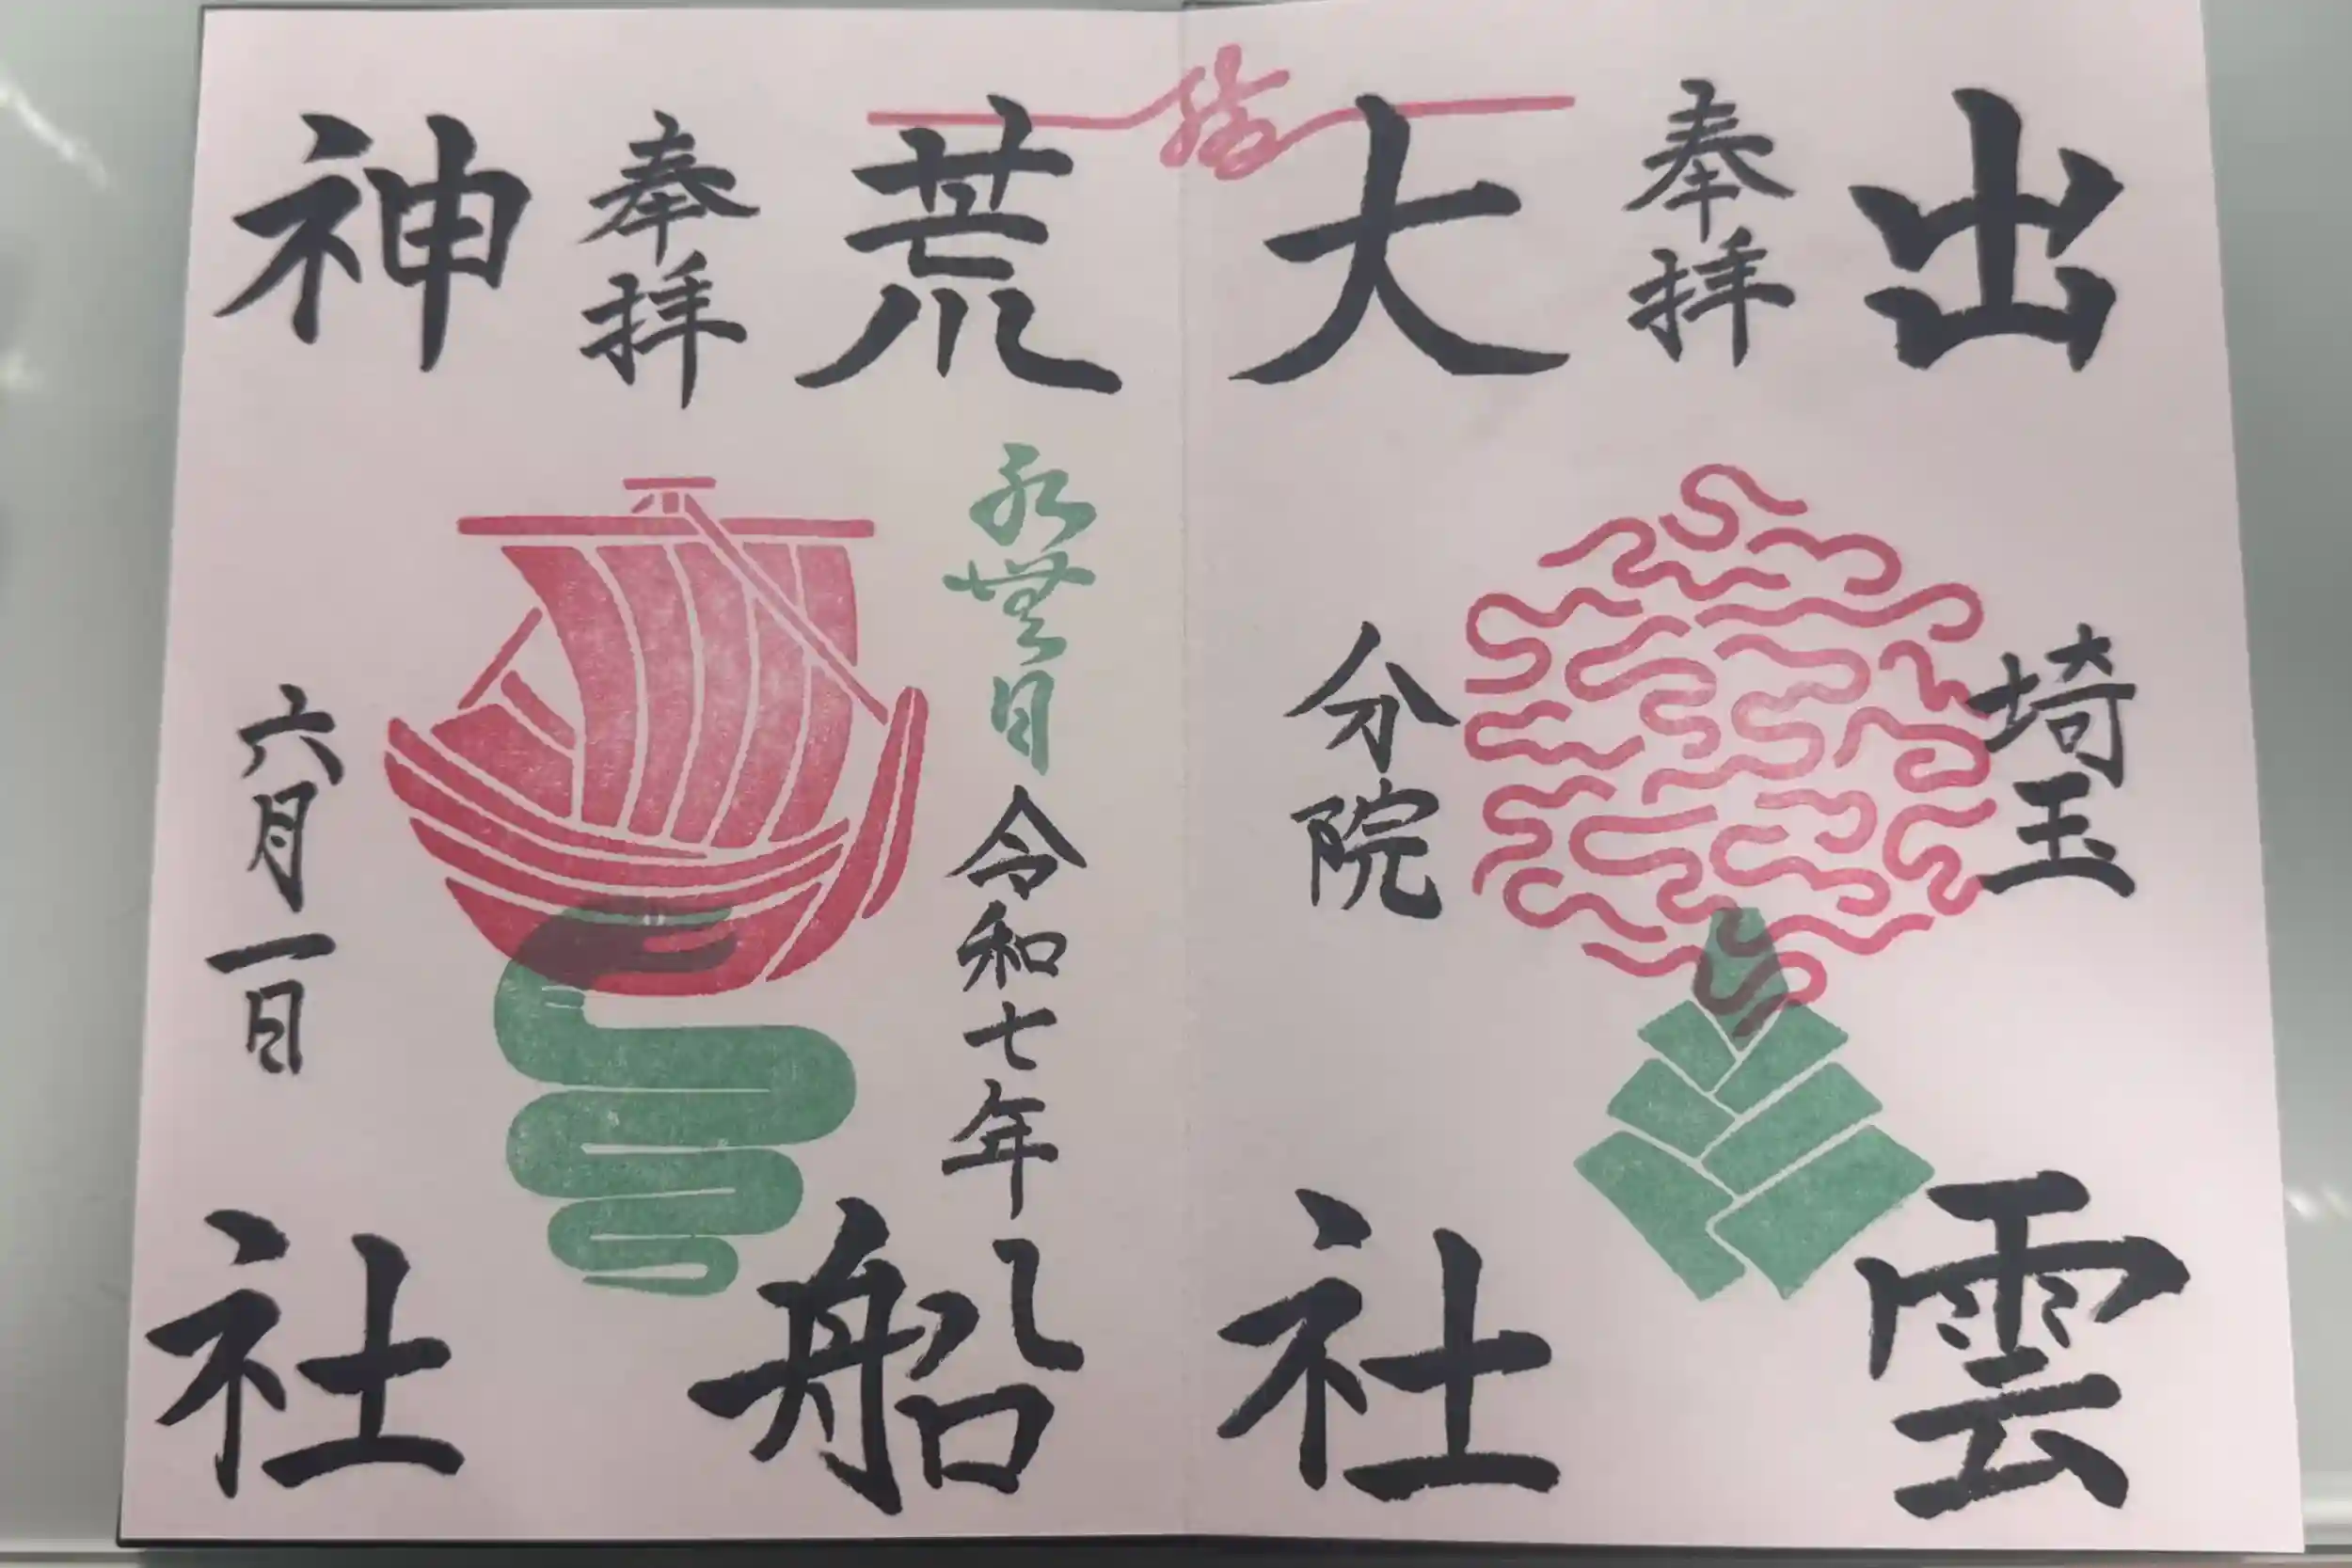 出雲
奉拝
大社
埼玉
分院
荒船
奉拝
神社
令和七年
六月一日